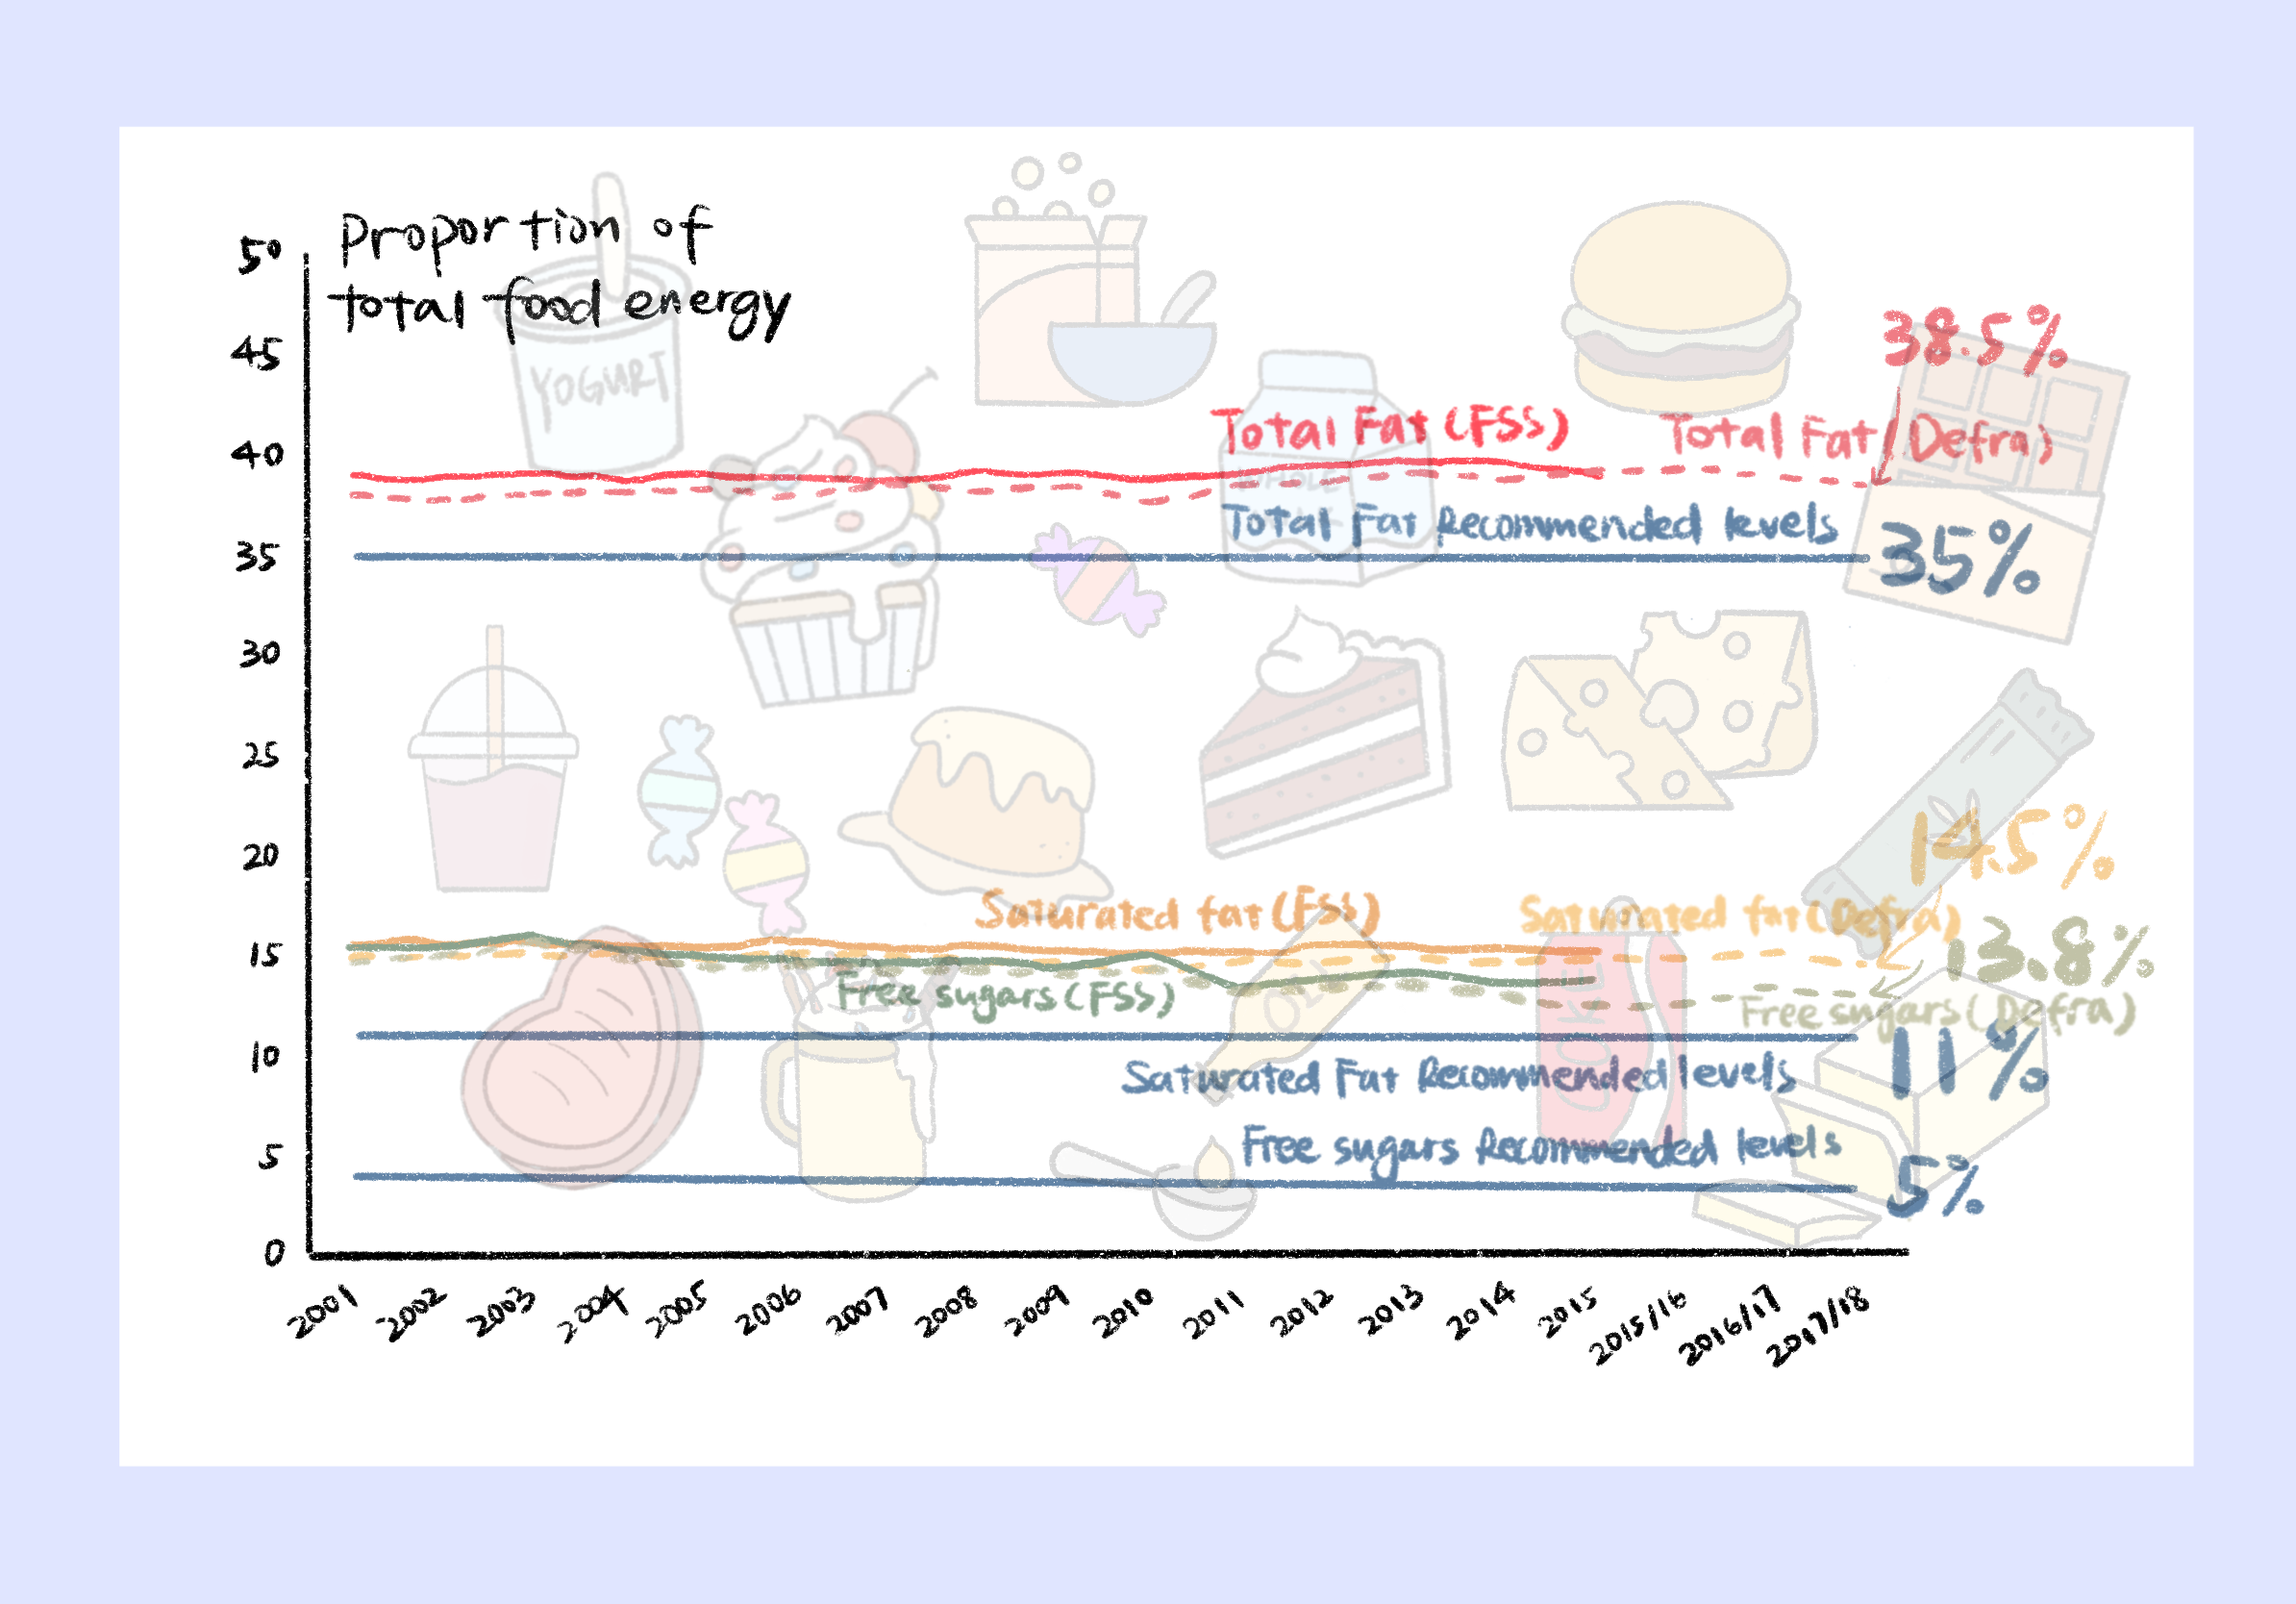 Proportion of
total food energy
50
45
40
35
30
25
20
15
10
5
0
YOGURT
38.5%
Total Fat (FSS)
Total Fat (Defra)
Total Fat Recommended levels
35%
14.5%
Saturated fat (FSS)
Saturated fat (Defra)
13.8%
Free sugars (FSS)
Free sugars (Defra)
OIL
COKE
11%
Saturated Fat Recommended levels
Free sugars Recommended levels
5%
2001
2002
2003
2004
2005
2006
2007
2008
2009
2010
2011
2012
2013
2014
2015
2015/16
2016/17
2017/18